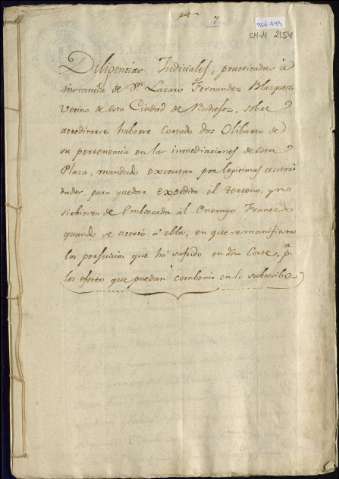 7
CM-M 2154
Diligencias Judiciales, practicadas à
instancia de Dn. Lazaro Fernandez Blazquez
vecino de esta Ciudad de Badajoz, sobre
acreditarse haberse Cortado dos Olibares de
su pertenencia en las inmediaciones de esta
Plaza, mandado executar por legitimas autori
dades para quedar expedito el terreno, y no
sirbiesen de Emboscada al Enemigo Frances
quando se acercó à ella, en que se manifiestan
los perjuicios que ha sufrido en dho Corte, pª
los efectos que puedan combenir en lo subcesibo